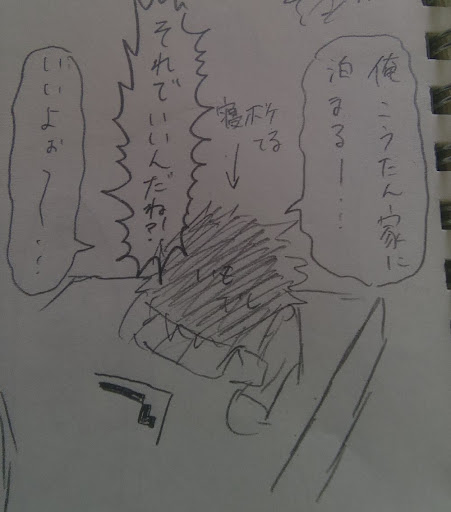 俺こうたん家に
泊まるー…
寝ボケ
てる
それでいいんだね!?
いいよぉ〜…